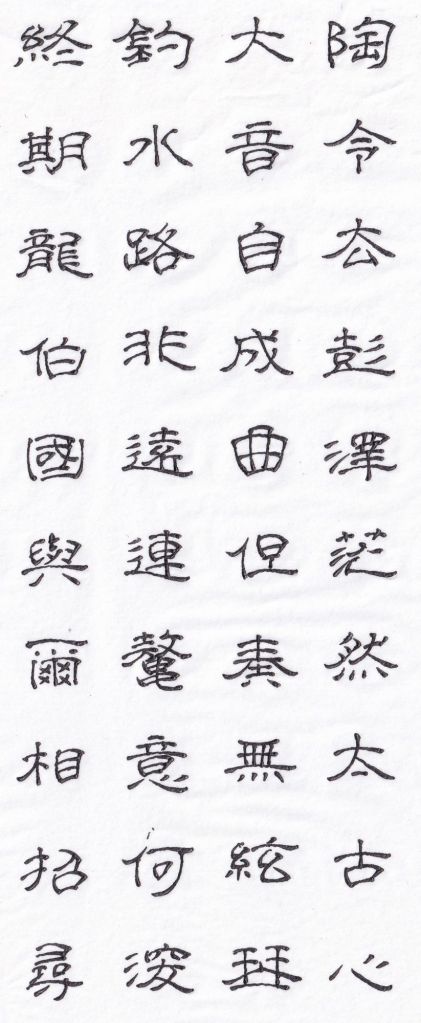 陶令去彭澤茫然太古心
大音自成曲但奏無絃琴
釣水路非遠連鼇意何深
終期龍伯國與爾相招尋